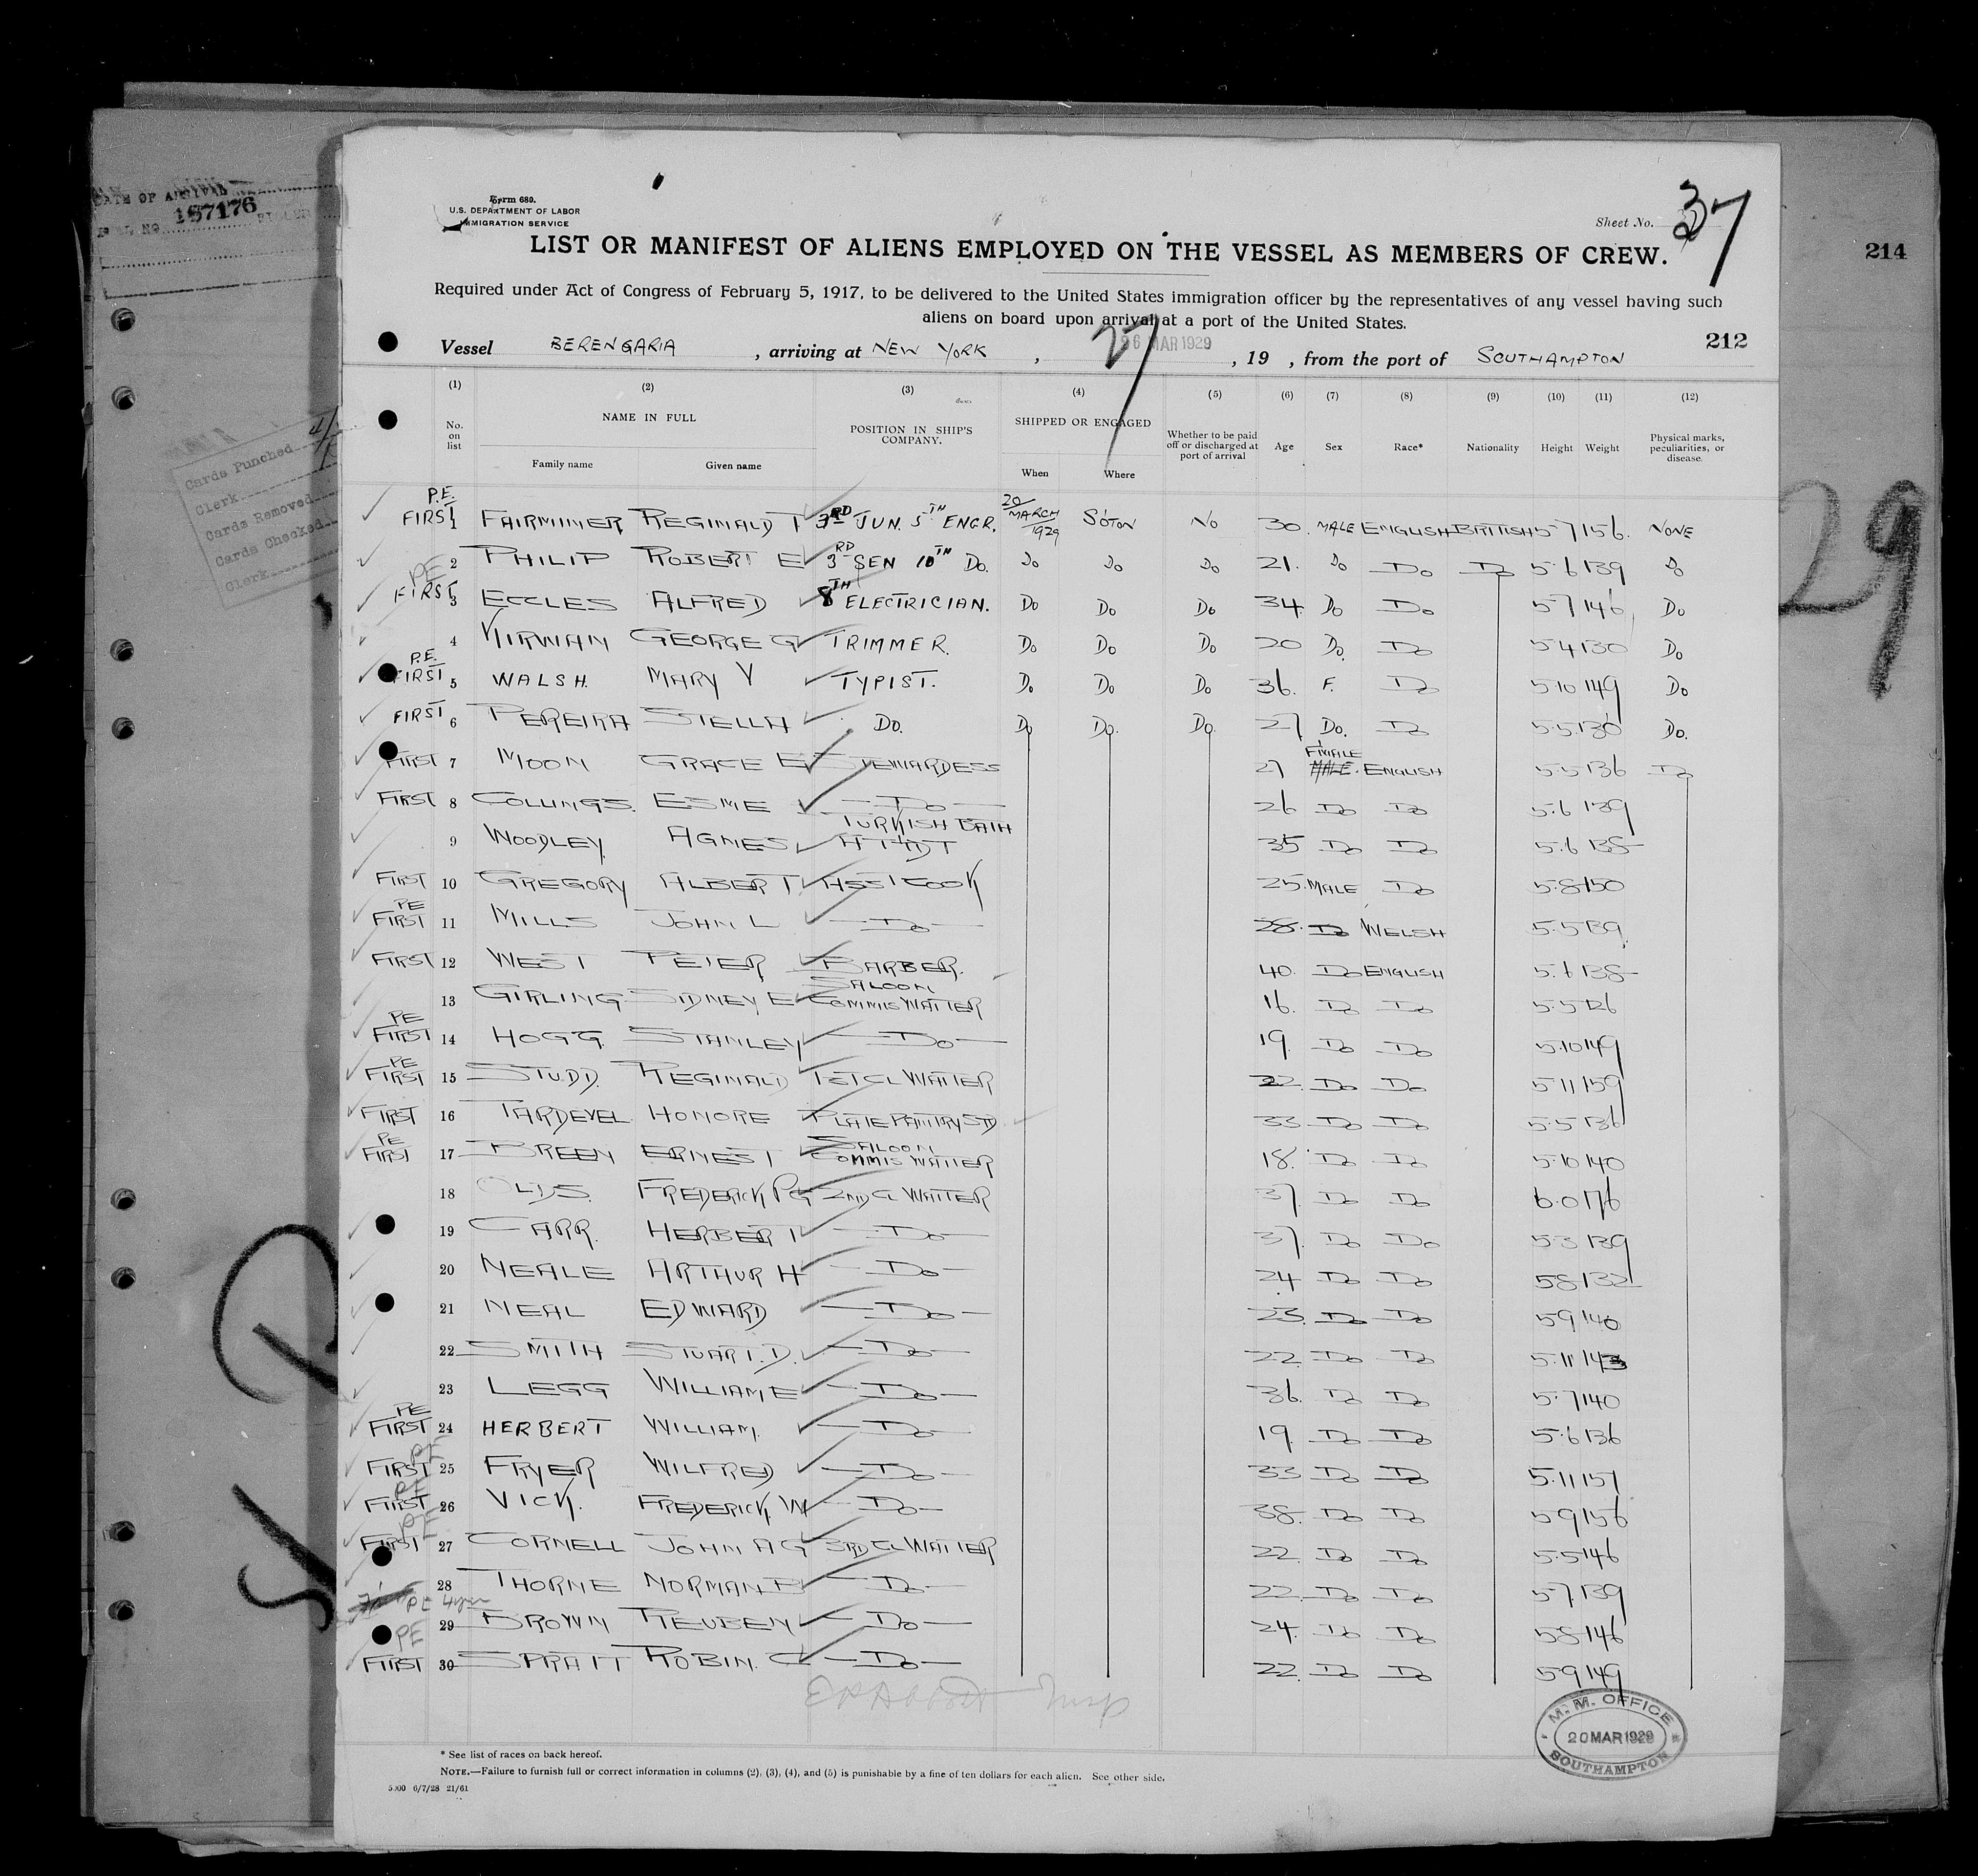 DATE OF ARRIVAL
157176
214
Form 680.
U.S. DEPARTMENT OF LABOR
IMMIGRATION SERVICE
Sheet No. 37
LIST OR MANIFEST OF ALIENS EMPLOYED ON THE VESSEL AS MEMBERS OF CREW.
Required under Act of Congress of February 5, 1917, to be delivered to the United States immigration officer by the representatives of any vessel having such
aliens on board upon arrival at a port of the United States.
212
Vessel BERENGARIA, arriving at NEW YORK, 26 MAR 1929 27, 19 , from the port of SOUTHAMPTON
(1) (2) (3) (4) (5) (6) (7) (8) (9) (10) (11) (12)
No. on list NAME IN FULL POSITION IN SHIP'S COMPANY. SHIPPED OR ENGAGED Whether to be paid off or discharged at port of arrival Age Sex Race* Nationality Height Weight Physical marks, peculiarities, or disease.
Family name Given name When Where
Cards Punched
Clerk
Cards Removed
Cards Checked
Clerk
29
P.E. FIRST 1 FAIRMINER REGINALD T 3RD JUN. 5TH ENGR. 20 MARCH 1929 S'OTON NO 30. MALE ENGLISH BRITISH 5-7 156. NONE
2 PHILIP ROBERT E 3RD SEN 10TH DO. DO DO DO 21. DO DO DO 5-6 139 DO
PE FIRST 3 ECCLES ALFRED 8TH ELECTRICIAN. DO DO DO 34 DO DO 5-7 146 DO
4 KIRWAN GEORGE G TRIMMER. DO DO DO 20 DO. DO 5-4 130 DO
P.E. FIRST 5 WALSH. MARY V TYPIST. DO DO DO 36. F. DO 5-10 149 DO
FIRST 6 PEREIRA STELLA DO. DO DO. DO 27 DO. DO 5-5 130 DO.
FIRST 7 MOON GRACE E STEWARDESS 27 FMALE MALE. ENGLISH 5-5 136 DO
FIRST 8 COLLINGS. ESME DO 26 DO DO 5-6 139
9 WOODLEY AGNES TURKISH BATH ATTNDT 35 DO DO 5-6 138
FIRST 10 GREGORY ALBERT ASST COOK 25. MALE DO 5-8 150
PE FIRST 11 MILLS JOHN L DO 28. DO WELSH 5-5 139
FIRST 12 WEST PETER BARBER. 40. DO ENGLISH 5-6 138
13 GIRLING SIDNEY E SALOON COMMIS WAITER 16. DO DO 5-5 126
PE FIRST 14 HOGG. STANLEY DO 19. DO DO 5-10 149
PE FIRST 15 STUDD. REGINALD 1ST CL WAITER 22. DO DO 5-11 159
FIRST 16 TARDEVEL HONORE PLATE PANTRY STD 33 DO DO 5-5 136
PE FIRST 17 BREEN ERNEST SALOON COMMIS WAITER 18. DO DO 5-10 140
18 OLDS. FREDERICK P G 2ND CL WAITER 37 DO DO 6-0 176
19 CARR. HERBERT DO 37. DO DO 5-3 139
20 NEALE ARTHUR H DO 24 DO DO 5-8 132
21 NEAL EDWARD DO 23. DO DO 5-9 140
22 SMITH STUART. D. DO 22. DO DO 5-11 143
23 LEGG WILLIAM E DO 36. DO DO 5-7 140
PE FIRST 24 HERBERT WILLIAM. DO 19 DO DO 5-6 136
PE FIRST 25 FRYER WILFRED DO 33 DO DO 5-11 157
PE FIRST 26 VICK. FREDERICK. W DO 38. DO DO 5-9 156
PE FIRST 27 CORNELL JOHN A G 3RD CL WAITER 22. DO DO 5-5 146
28 THORNE NORMAN. B DO 22. DO DO 5-7 139
PE 29 BROWN REUBEN DO 24. DO DO 5-8 146
PE FIRST 30 SPRATT ROBIN. C DO 22. DO DO 5-9 149
Insp
M. M. OFFICE
20 MAR 1929
SOUTHAMPTON
* See list of races on back hereof.
NOTE.—Failure to furnish full or correct information in columns (2), (3), (4), and (5) is punishable by a fine of ten dollars for each alien. See other side.
5000 6/7/28 21/61